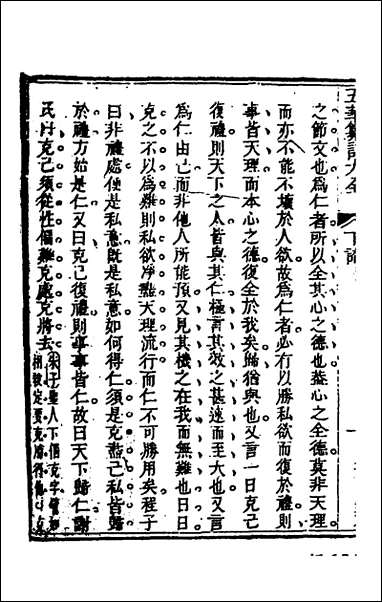 五華纂訂大全 下論
之節文也為仁者所以全其心之德也蓋心之全德莫非天理
而亦不能不壞於人欲故為仁者必有以勝私欲而復於禮則
事皆天理而本心之德復全於我矣歸猶與也又言一日克己
復禮則天下之人皆與其仁極言其效之甚速而至大也又言
為仁由己而非他人所能預又見其機之在我而無難也日日
克之不以為難則私欲淨盡天理流行而仁不可勝用矣程子
曰非禮處便是私意既是私意如何得仁須是克盡己私皆歸
於禮方始是仁又曰克己復禮則事事皆仁故曰天下歸仁謝
氏曰克己須從性偏難克處克將去
朱子聖人下個克字譬如
相殺定要克勝得他